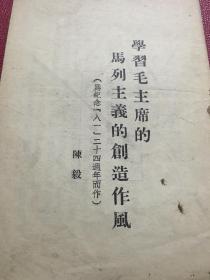 學習毛主席的
馬列主義的創造作風
(爲紀念「八一」二十四週年而作)
陳毅